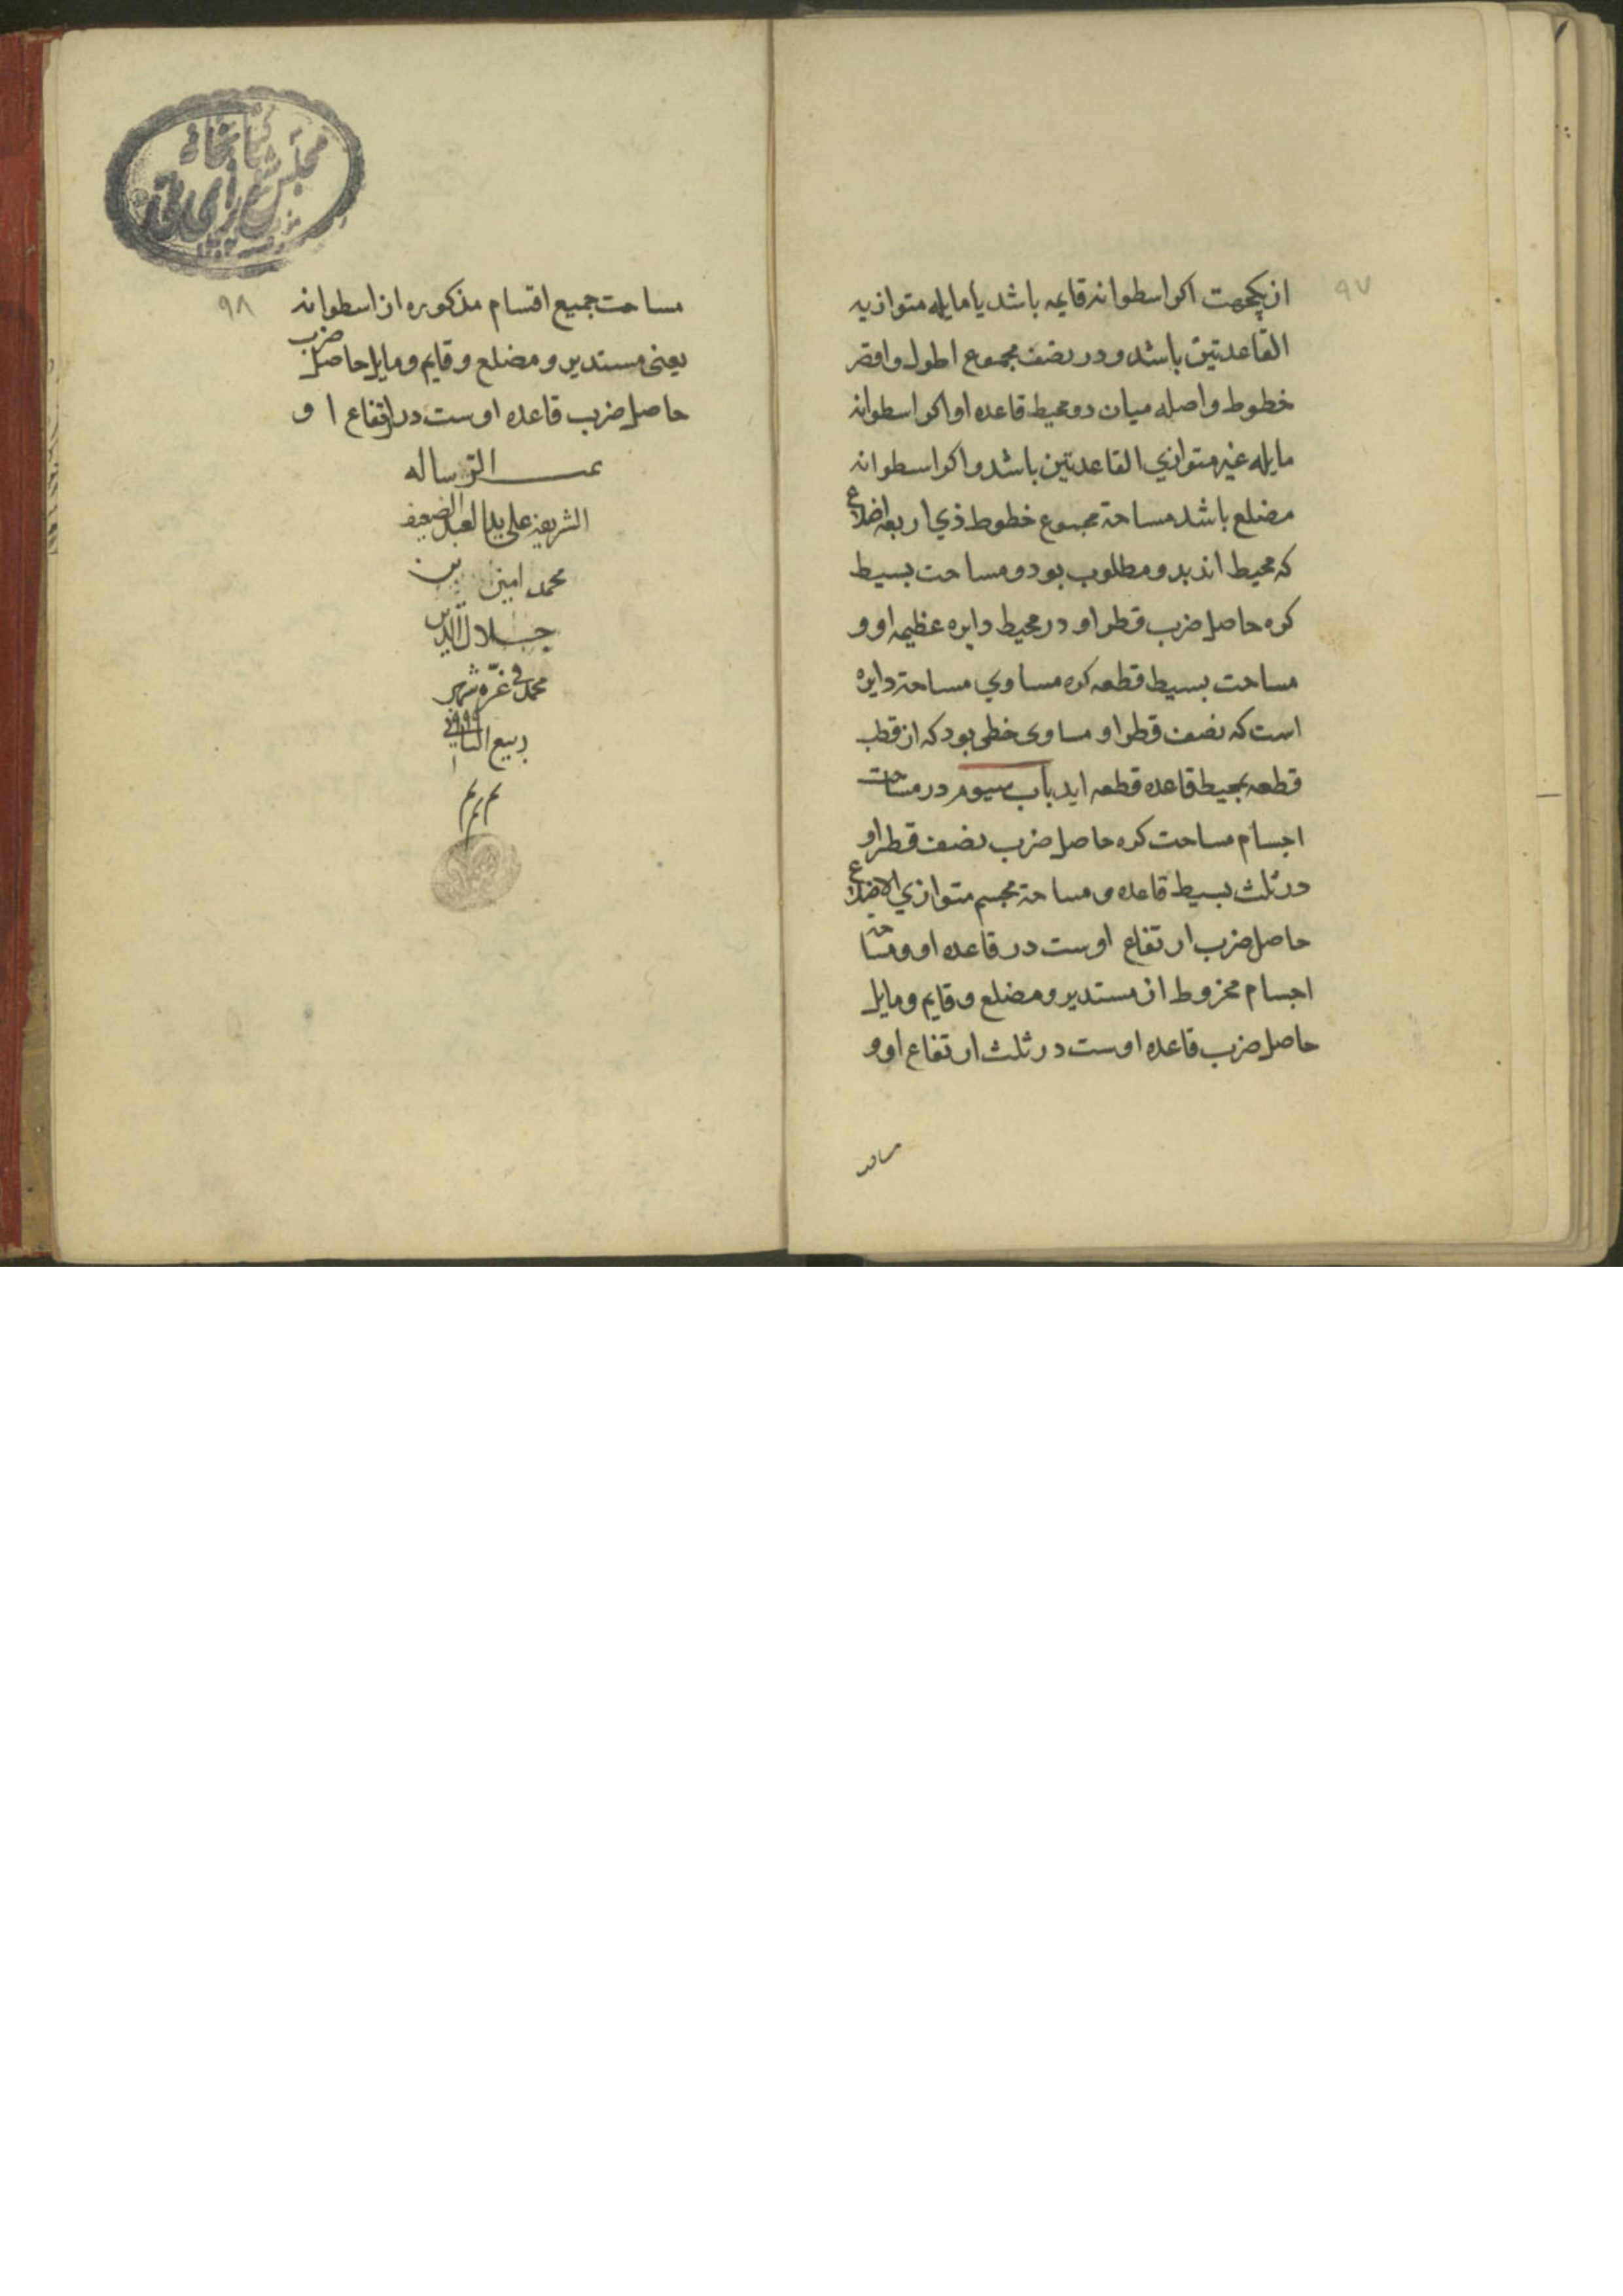 ۹۷
از یکجهت اکر اسطوانه قایمه باشد یا مایله متوازیه
القاعدتین باشد و در نصف مجموع اطول و اقصر
خطوط واصله میان دو محیط قاعده او اکر اسطوانه
مایله غیر متوازی القاعدتین باشد و اکر اسطوانه
مضلع باشد مساحة مجموع خطوط ذی اربعه اضلاع
که محیط اند بدو مطلوب بود و مساحت بسیط
کره حاصل ضرب قطر او در محیط دایره عظیمه او و
مساحت بسیط قطعه کره مساوی مساحة دایره
است که نصف قطر او مساوی خطی بود که از قطب
قطعه بمحیط قاعده قطعه اید باب سیوم در مساحت
اجسام مساحت کره حاصل ضرب نصف قطر او
در ثلث بسیط قاعده و مساحة مجسم متوازی الاضلاع
حاصل ضرب ارتفاع اوست در قاعده او و مساحة
اجسام مخروط از مستدیر و مضلع و قایم و مایل
حاصل ضرب قاعده اوست در ثلث ارتفاع او و
کتابخانهٔ
مجلس شورای ملی
۹۸
مساحت جمیع اقسام مذکوره از اسطوانه
یعنی مستدیر و مضلع و قایم و مایل حاصل ضرب
حاصل ضرب قاعده اوست در ارتفاع او
تمت الرساله
الشریفه علی ید العبد الضعیف
محمد امین بن
جلال الدین
محمد فی غرّه شهر
ربیع الثانی ۹۹۹
م م م